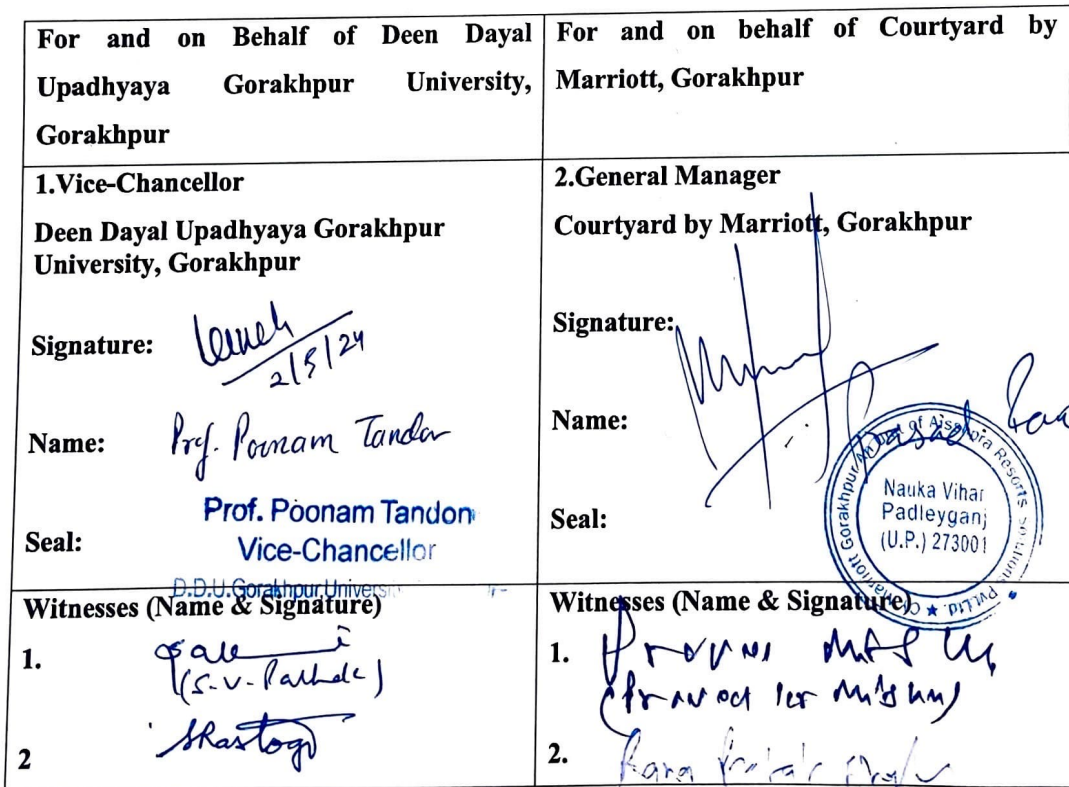 For and on Behalf of Deen Dayal
Upadhyaya Gorakhpur University,
Gorakhpur
For and on behalf of Courtyard by
Marriott, Gorakhpur
1.Vice-Chancellor
Deen Dayal Upadhyaya Gorakhpur
University, Gorakhpur
Signature:
2/5/24
Name: Prof. Poonam Tandon
Seal:
Prof. Poonam Tandon
Vice-Chancellor
D.D.U.Gorakhpur
2.General Manager
Courtyard by Marriott, Gorakhpur
Signature:
Name:
Seal:
Marriott Gorakhpur
of Aisshpra Resorts Solutions Pvt.Ltd.
Nauka Vihar
Padleyganj
(U.P.) 273001
Witnesses (Name & Signature)
1.
(S.V. Pathak)
2 SRastogi
Witnesses (Name & Signature)
1.
2. Rana